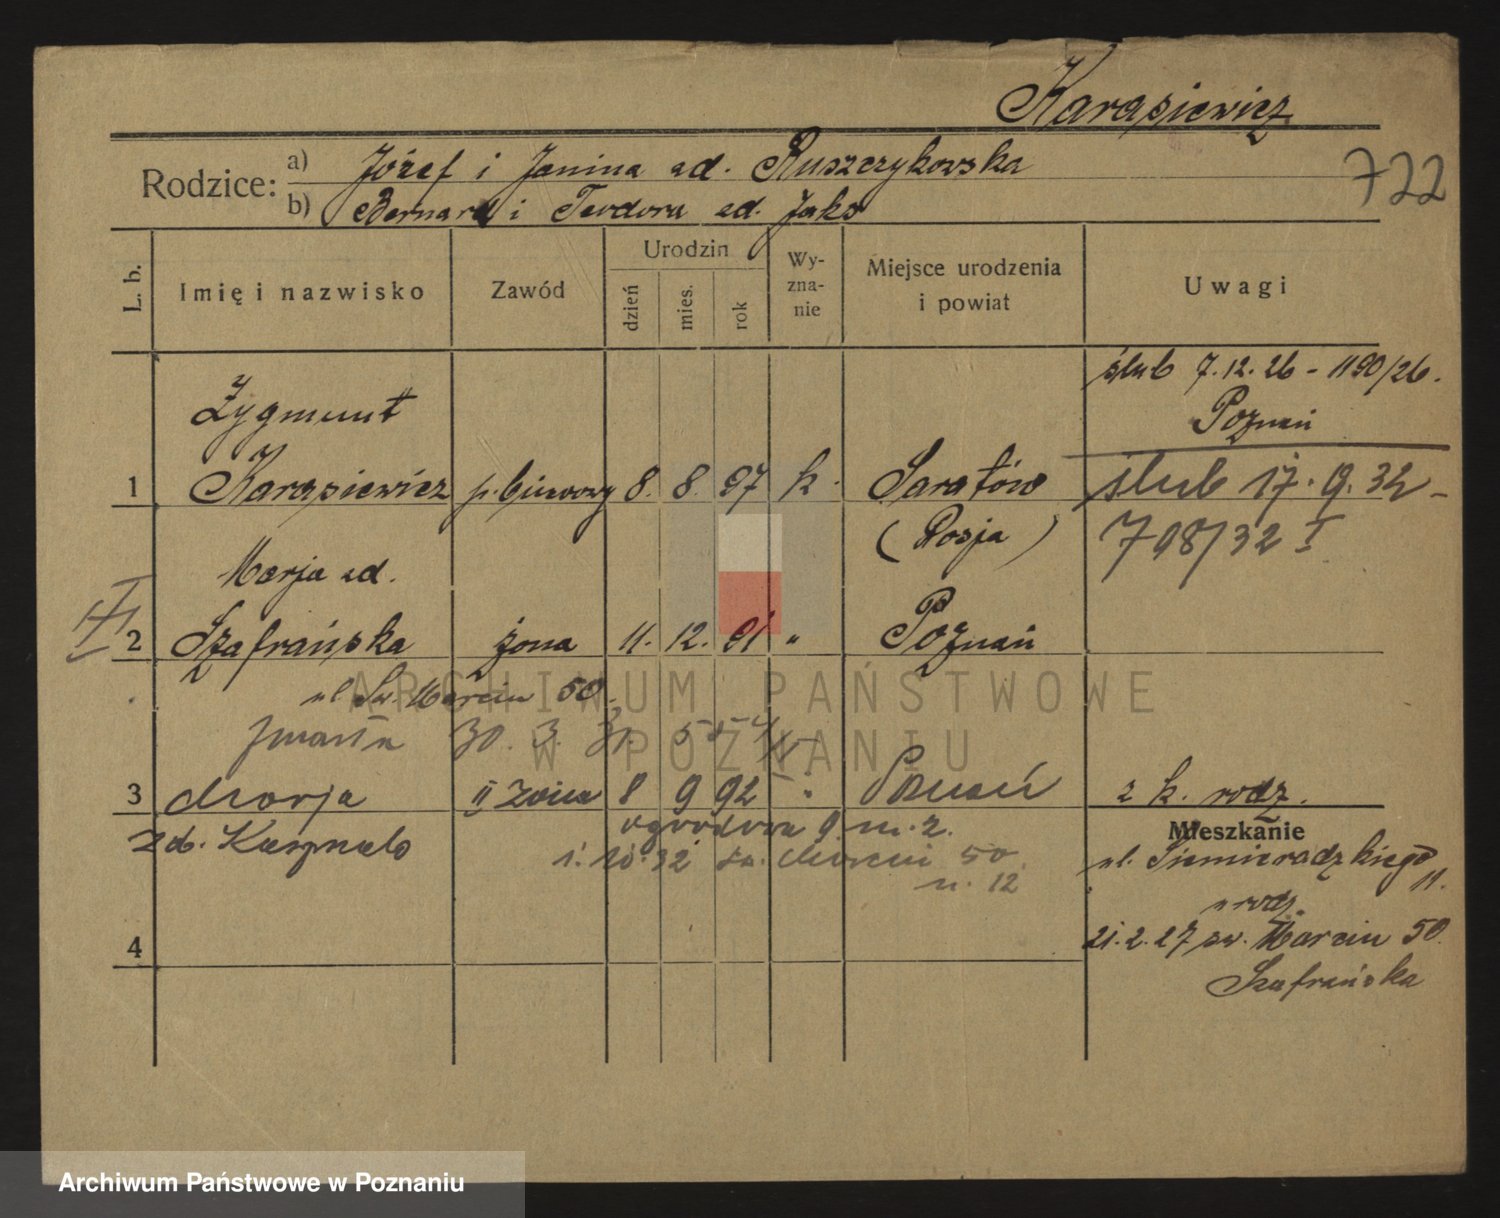 Karasiewicz
722
Rodzice:
a) Józef i Janina zd. Ruszczykowska
b) Bernard i Teodora zd. Jako
L. b.
Imię i nazwisko
Zawód
Urodzin
dzień
mies.
rok
Wy-
zna-
nie
Miejsce urodzenia
i powiat
Uwagi
ślub 7.12.26 - 1190/26.
Poznań
Zygmunt
1 Karasiewicz p. biurowy 8. 8. 97 k. Saratów
(Rosja)
ślub 17.9.32 -
798/32 I
Marja zd.
2 Szafrańska żona 11. 12. 91 " Poznań
ul. Św. Marcin 50.
zmarła 30. 3. 31.
3 Marja II żona 8 9 92 " Poznań 2 k. rodz.
zd.
ogrodowa 9 m. 2.
1. 10. 32 św. Marcin 50
m. 12
Mieszkanie
ul. Siemieradzkiego
11.
u rodz.
21.2.27 św. Marcin 50.
Szafrańska
4
ARCHIWUM PAŃSTWOWE
W POZNANIU
Archiwum Państwowe w Poznaniu